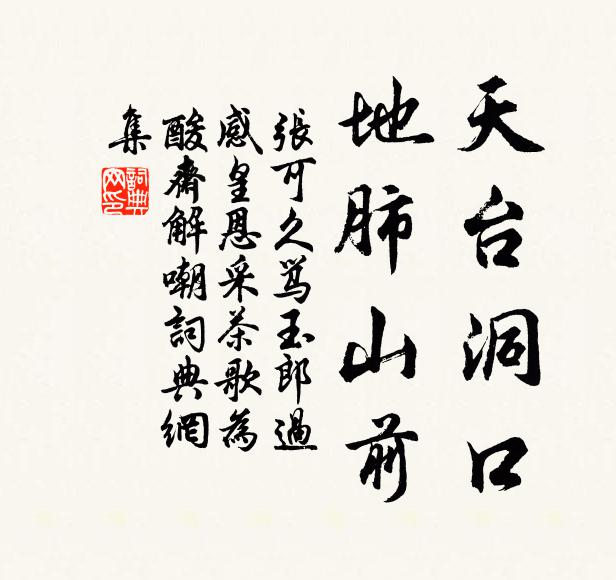 天台洞口
地肺山前
張可久罵玉郎過
感皇恩采茶歌為
酸齋解嘲詞典網
集
詞典
网印